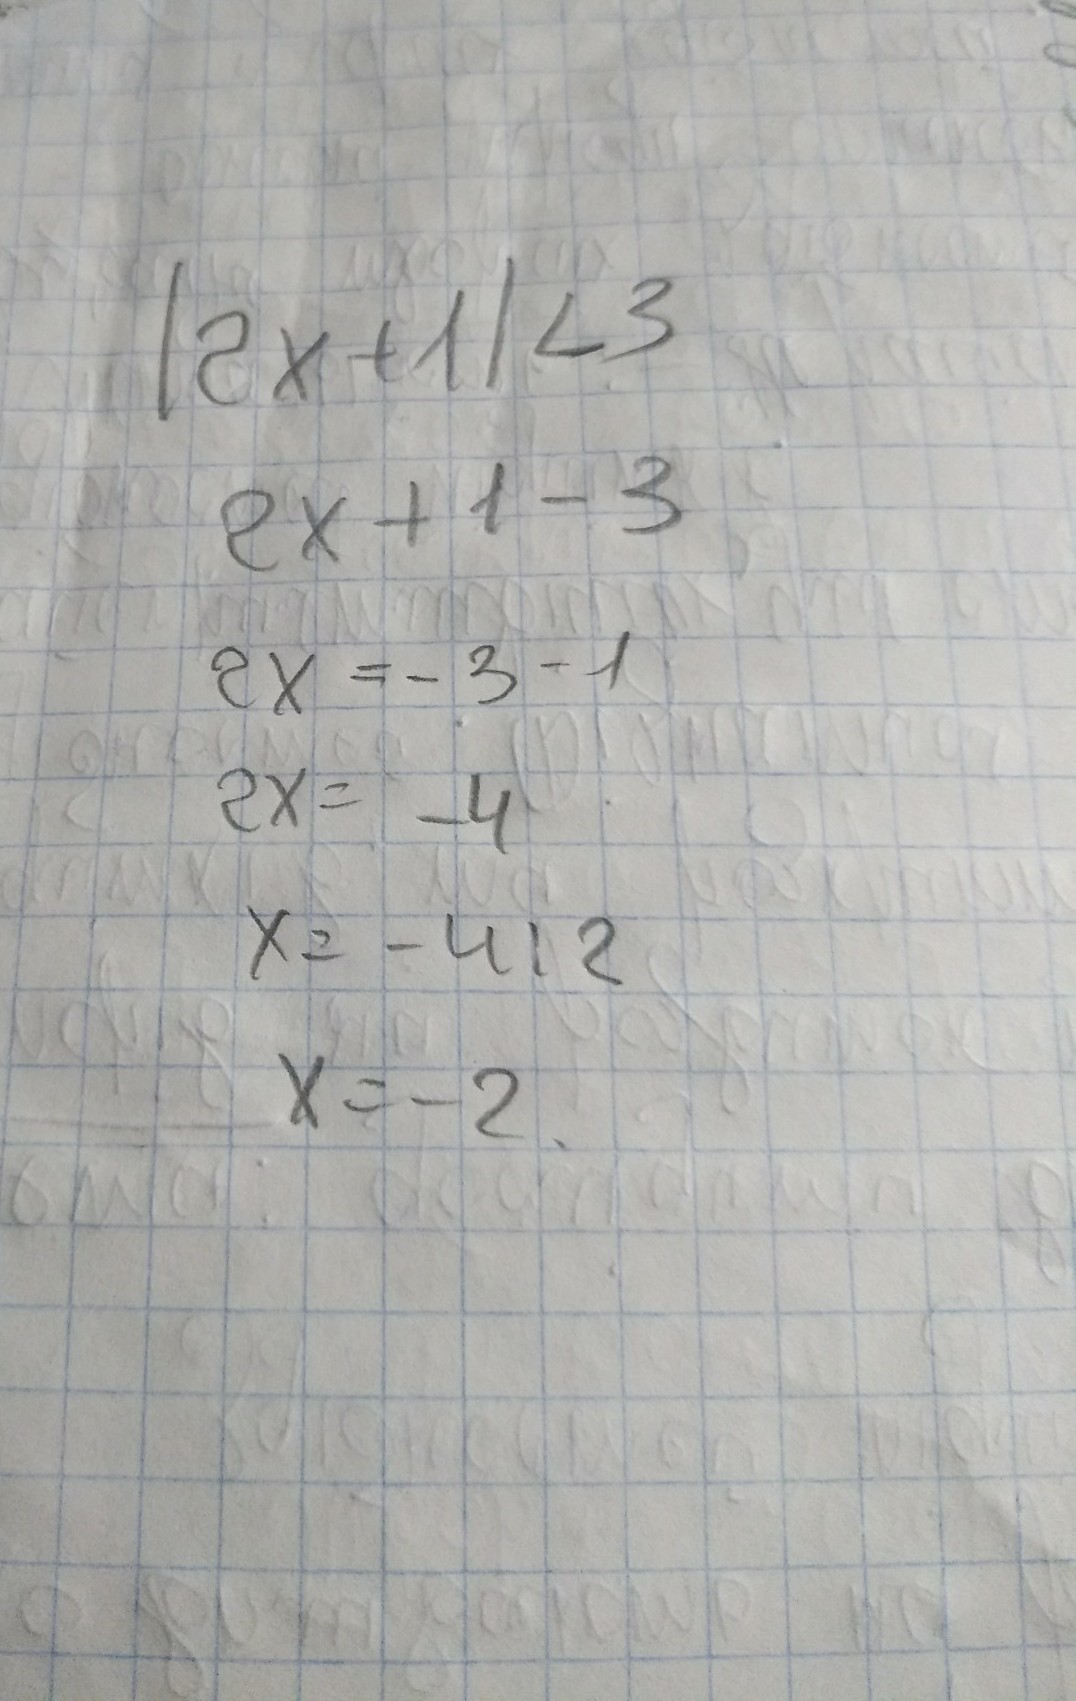 |2x+1|<3
2x+1-3
2x=-3-1
2x= -4
x= -4:2
x=-2.